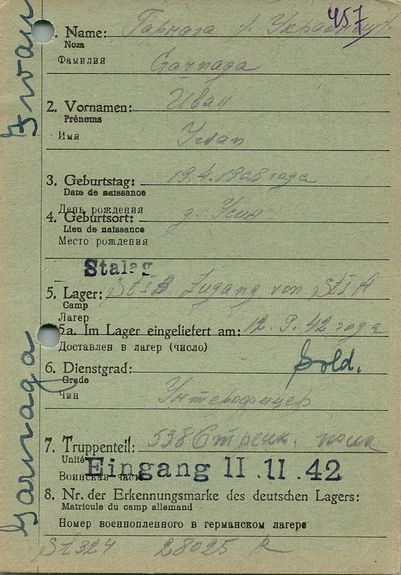 1. Name: Гарнага 457
Nom
Фамилия
2. Vornamen: Иван
Prénoms
Имя Iwan
3. Geburtstag: 19.4.1908 года
Date de naissance
День рождения
4. Geburtsort:
Lieu de naissance
Место рождения
Stalag
5. Lager: Zugang von St I A
Camp
Лагер
5a. Im Lager eingeliefert am: 12.9.42 года
Доставлен в лагер (число)
6. Dienstgrad: Sold.
Grade
Чин Унтерофицер
7. Truppenteil: 538 Стрелк. полк
Unité
Воинская часть
Eingang 11.11.42
8. Nr. der Erkennungsmarke des deutschen Lagers:
Matricule du camp allemand
Номер военнопленного в германском лагере
St 324 28025 R
Garnaga Iwan